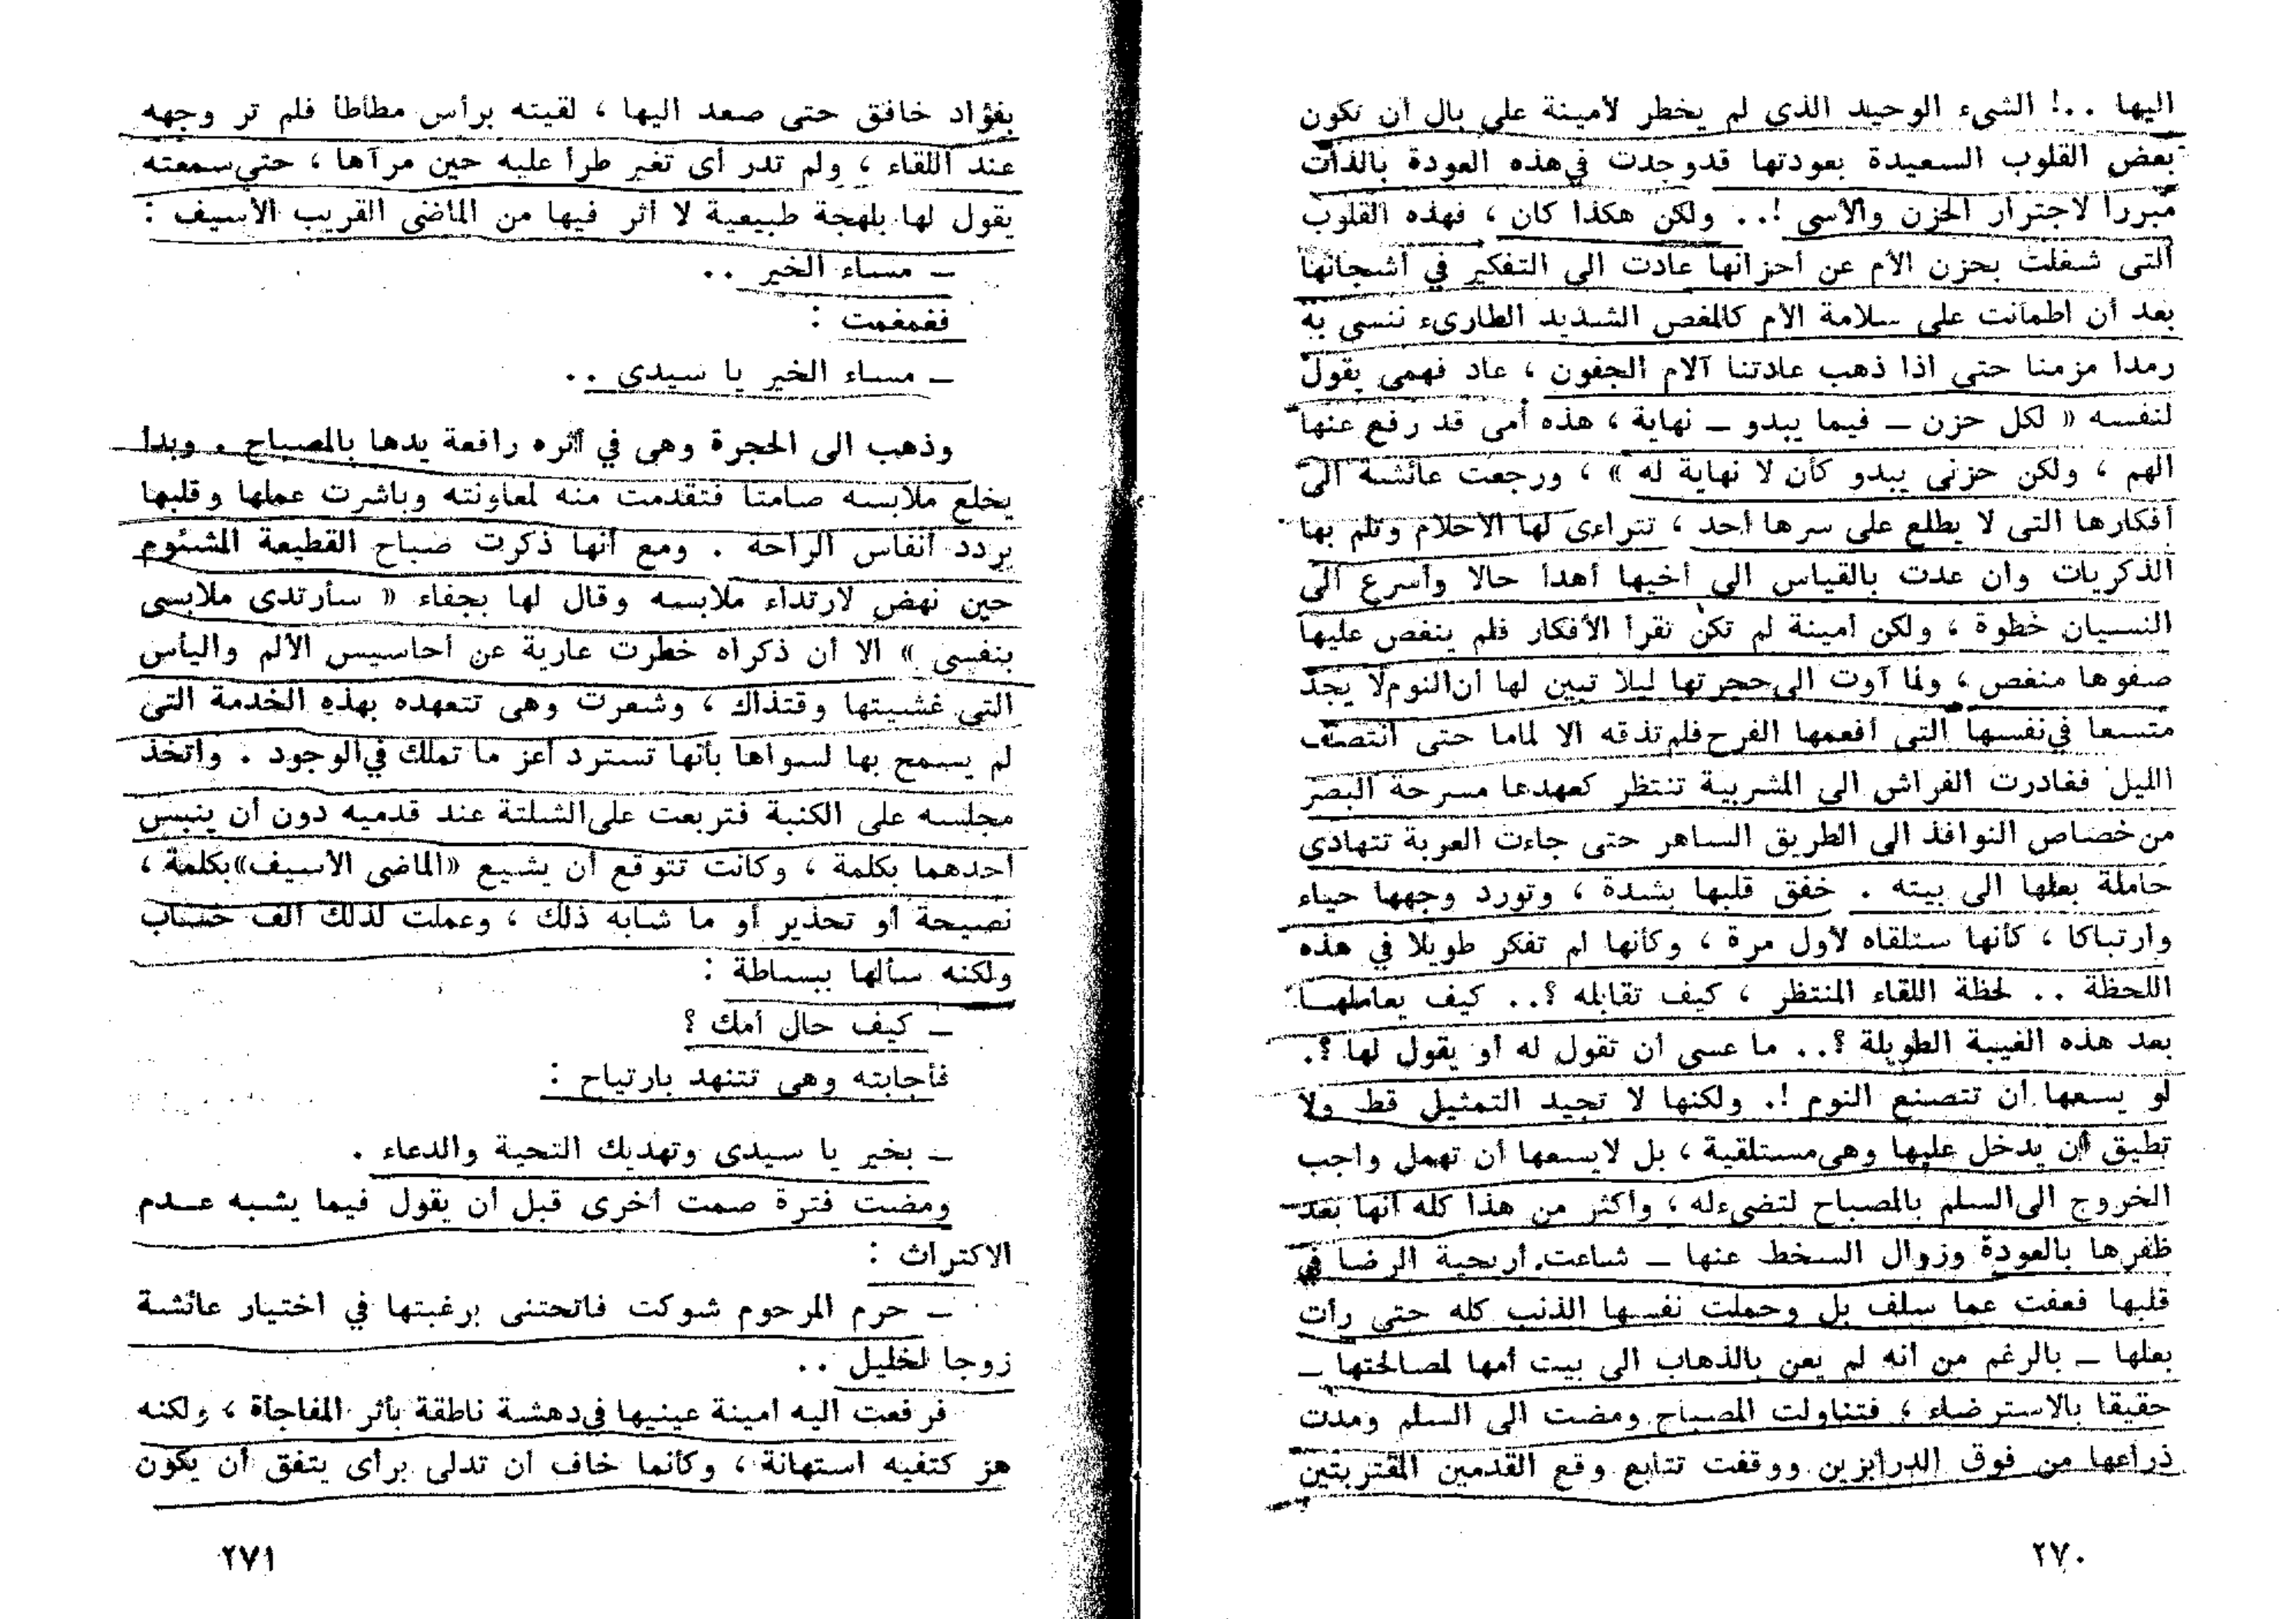 اليها ..! الشيء الوحيد الذى لم يخطر لأمينة على بال أن تكون
بعض القلوب السعيدة بعودتها قد وجدت في هذه العودة بالذات
مبررا لاجترار الحزن والأسى !.. ولكن هكذا كان ، فهذه القلوب
التى شغلت بحزن الأم عن أحزانها عادت الى التفكير في أشجانها
بعد أن اطمأنت على سلامة الأم كالمغص الشديد الطارىء ننسى به
رمدا مزمنا حتى اذا ذهب عادتنا آلام الجفون ، عاد فهمى يقول
لنفسه « لكل حزن – فيما يبدو – نهاية ، هذه أمى قد رفع عنها
الهم ، ولكن حزنى يبدو كأن لا نهاية له » ، ورجعت عائشة الى
أفكارها التى لا يطلع على سرها أحد ، تتراءى لها الأحلام وتلم بها
الذكريات وان عدت بالقياس الى أخيها أهدأ حالا وأسرع الى
النسيان خطوة ، ولكن أمينة لم تكن تقرأ الأفكار فلم ينغص عليها
صفوها منغص ، ولما آوت الى حجرتها ليلا تبين لها أن النوم لا يجد
متسعا في نفسها التى أفعمها الفرح فلم تذقه الا لماما حتى انتصف
الليل فغادرت الفراش الى المشربية تنتظر كعهدها مسرحة البصر
من خصاص النوافذ الى الطريق الساهر حتى جاءت العربة تتهادى
حاملة بعلها الى بيته . خفق قلبها بشدة ، وتورد وجهها حياء
وارتباكا ، كأنها ستلقاه لأول مرة ، وكأنها لم تفكر طويلا في هذه
اللحظة .. لحظة اللقاء المنتظر ، كيف تقابله ؟.. كيف يعاملهـا
بعد هذه الغيبة الطويلة ؟.. ما عسى أن تقول له أو يقول لها ؟.
لو يسعها أن تتصنع النوم !. ولكنها لا تجيد التمثيل قط ولا
تطيق أن يدخل عليها وهى مستلقية ، بل لايسعها أن تهمل واجب
الخروج الى السلم بالمصباح لتضىء له ، وأكثر من هذا كله أنها بعد
ظفرها بالعودة وزوال السخط عنها – شاعت أريحية الرضا في
قلبها فعفت عما سلف بل وحملت نفسها الذنب كله حتى رأت
بعلها – بالرغم من أنه لم يعن بالذهاب الى بيت أمها لمصالحتها –
حقيقا بالاسترضاء ، فتناولت المصباح ومضت الى السلم ومدت
ذراعها من فوق الدرابزين ووقفت تتابع وقع القدمين المقتربتين
٢٧٠
بفؤاد خافق حتى صعد اليها ، لقيته برأس مطأطأ فلم تر وجهه
عند اللقاء ، ولم تدر أى تغير طرأ عليه حين مرآها ، حتى سمعته
يقول لها بلهجة طبيعية لا أثر فيها من الماضى القريب الأسيف :
– مساء الخير ..
فغمغمت :
– مساء الخير يا سيدى ..
وذهب الى الحجرة وهى في أثره رافعة يدها بالمصباح . وبدأ
يخلع ملابسه صامتا فتقدمت منه لمعاونته وباشرت عملها وقلبها
يردد أنفاس الراحة . ومع أنها ذكرت صباح القطيعة المشئوم
حين نهض لارتداء ملابسه وقال لها بجفاء « سأرتدى ملابسى
بنفسى » الا أن ذكراه خطرت عارية عن أحاسيس الألم واليأس
التى غشيتها وقتذاك ، وشعرت وهى تتعهده بهذه الخدمة التى
لم يسمح بها لسواها بأنها تسترد أعز ما تملك في الوجود . واتخذ
مجلسه على الكنبة فتربعت على الشلتة عند قدميه دون أن ينبس
أحدهما بكلمة ، وكانت تتوقع أن يشيع «الماضى الأسيف» بكلمة ،
نصيحة أو تحذير أو ما شابه ذلك ، وعملت لذلك ألف حساب
ولكنه سألها ببساطة :
– كيف حال أمك ؟
فأجابته وهى تتنهد بارتياح :
– بخير يا سيدى وتهديك التحية والدعاء .
ومضت فترة صمت أخرى قبل أن يقول فيما يشبه عـدم
الاكتراث :
– حرم المرحوم شوكت فاتحتنى برغبتها في اختيار عائشة
زوجا لخليل ..
فرفعت اليه أمينة عينيها في دهشة ناطقة بأثر المفاجأة ، ولكنه
هز كتفيه استهانة ، وكأنما خاف أن تدلى برأى يتفق أن يكون
٢٧١